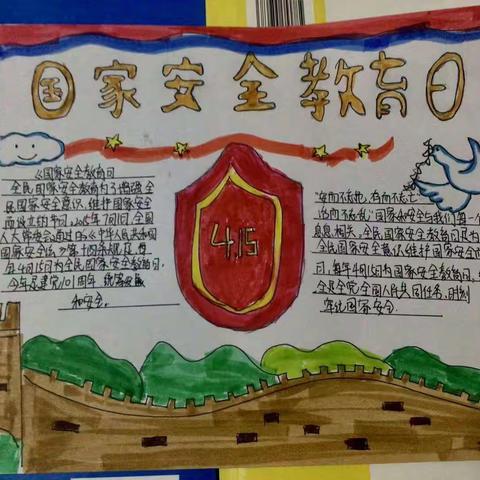 国家安全教育日
《国家安全教育日
全民国家安全教育为了增强全
民国家安全意识,维护国家安全
而设立的节日。2015年7月1日,全国
人大常委会通过的《中华人民共和国
国家安全法》第十四条规定,
每年4月15日为全民国家安全教育日。
今年是建党101周年 统筹发展
和安全.
4.15
"安而不忘危,存而不忘亡
治而不忘乱"国家的安全与我们每一个
息息相关。全民国家安全教育日是为
全民国家安全意识维护国家安全
日,每年4月15日为国家安全教育日,
全是全党、全国人民共同任务,时刻
牢记国家安全.